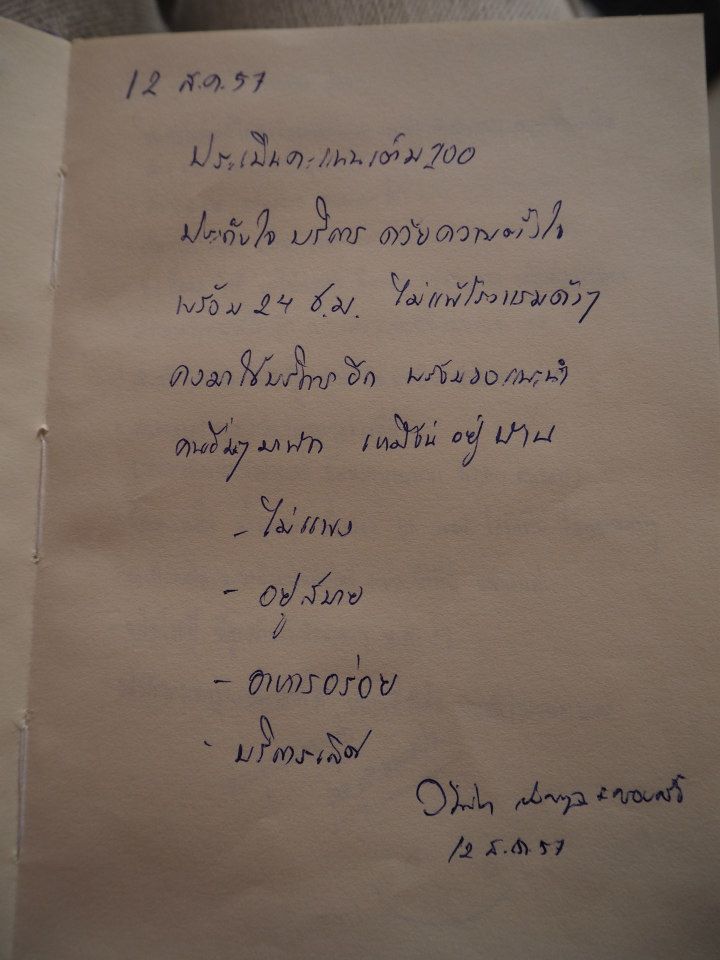 12 ส.ค.57
ประเมินคะแนนเต็ม 100
ประทับใจ บริการ ด้วยความตั้งใจ
พร้อม 24 ช.ม. ไม่แพ้โรงแรมดังๆ
คงมาใช้บริการอีก พร้อมขอแนะนำ
คนอื่นๆ มาพัก เหมือน อยู่ บ้าน
- ไม่แพง
- อยู่สบาย
- อาหารอร่อย
- บริการเลิศ
12 ส.ค.57